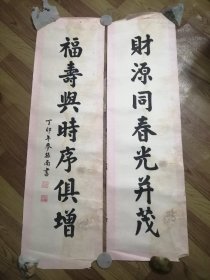 財源同春光并茂
福壽與時序俱增
丁卯年
書